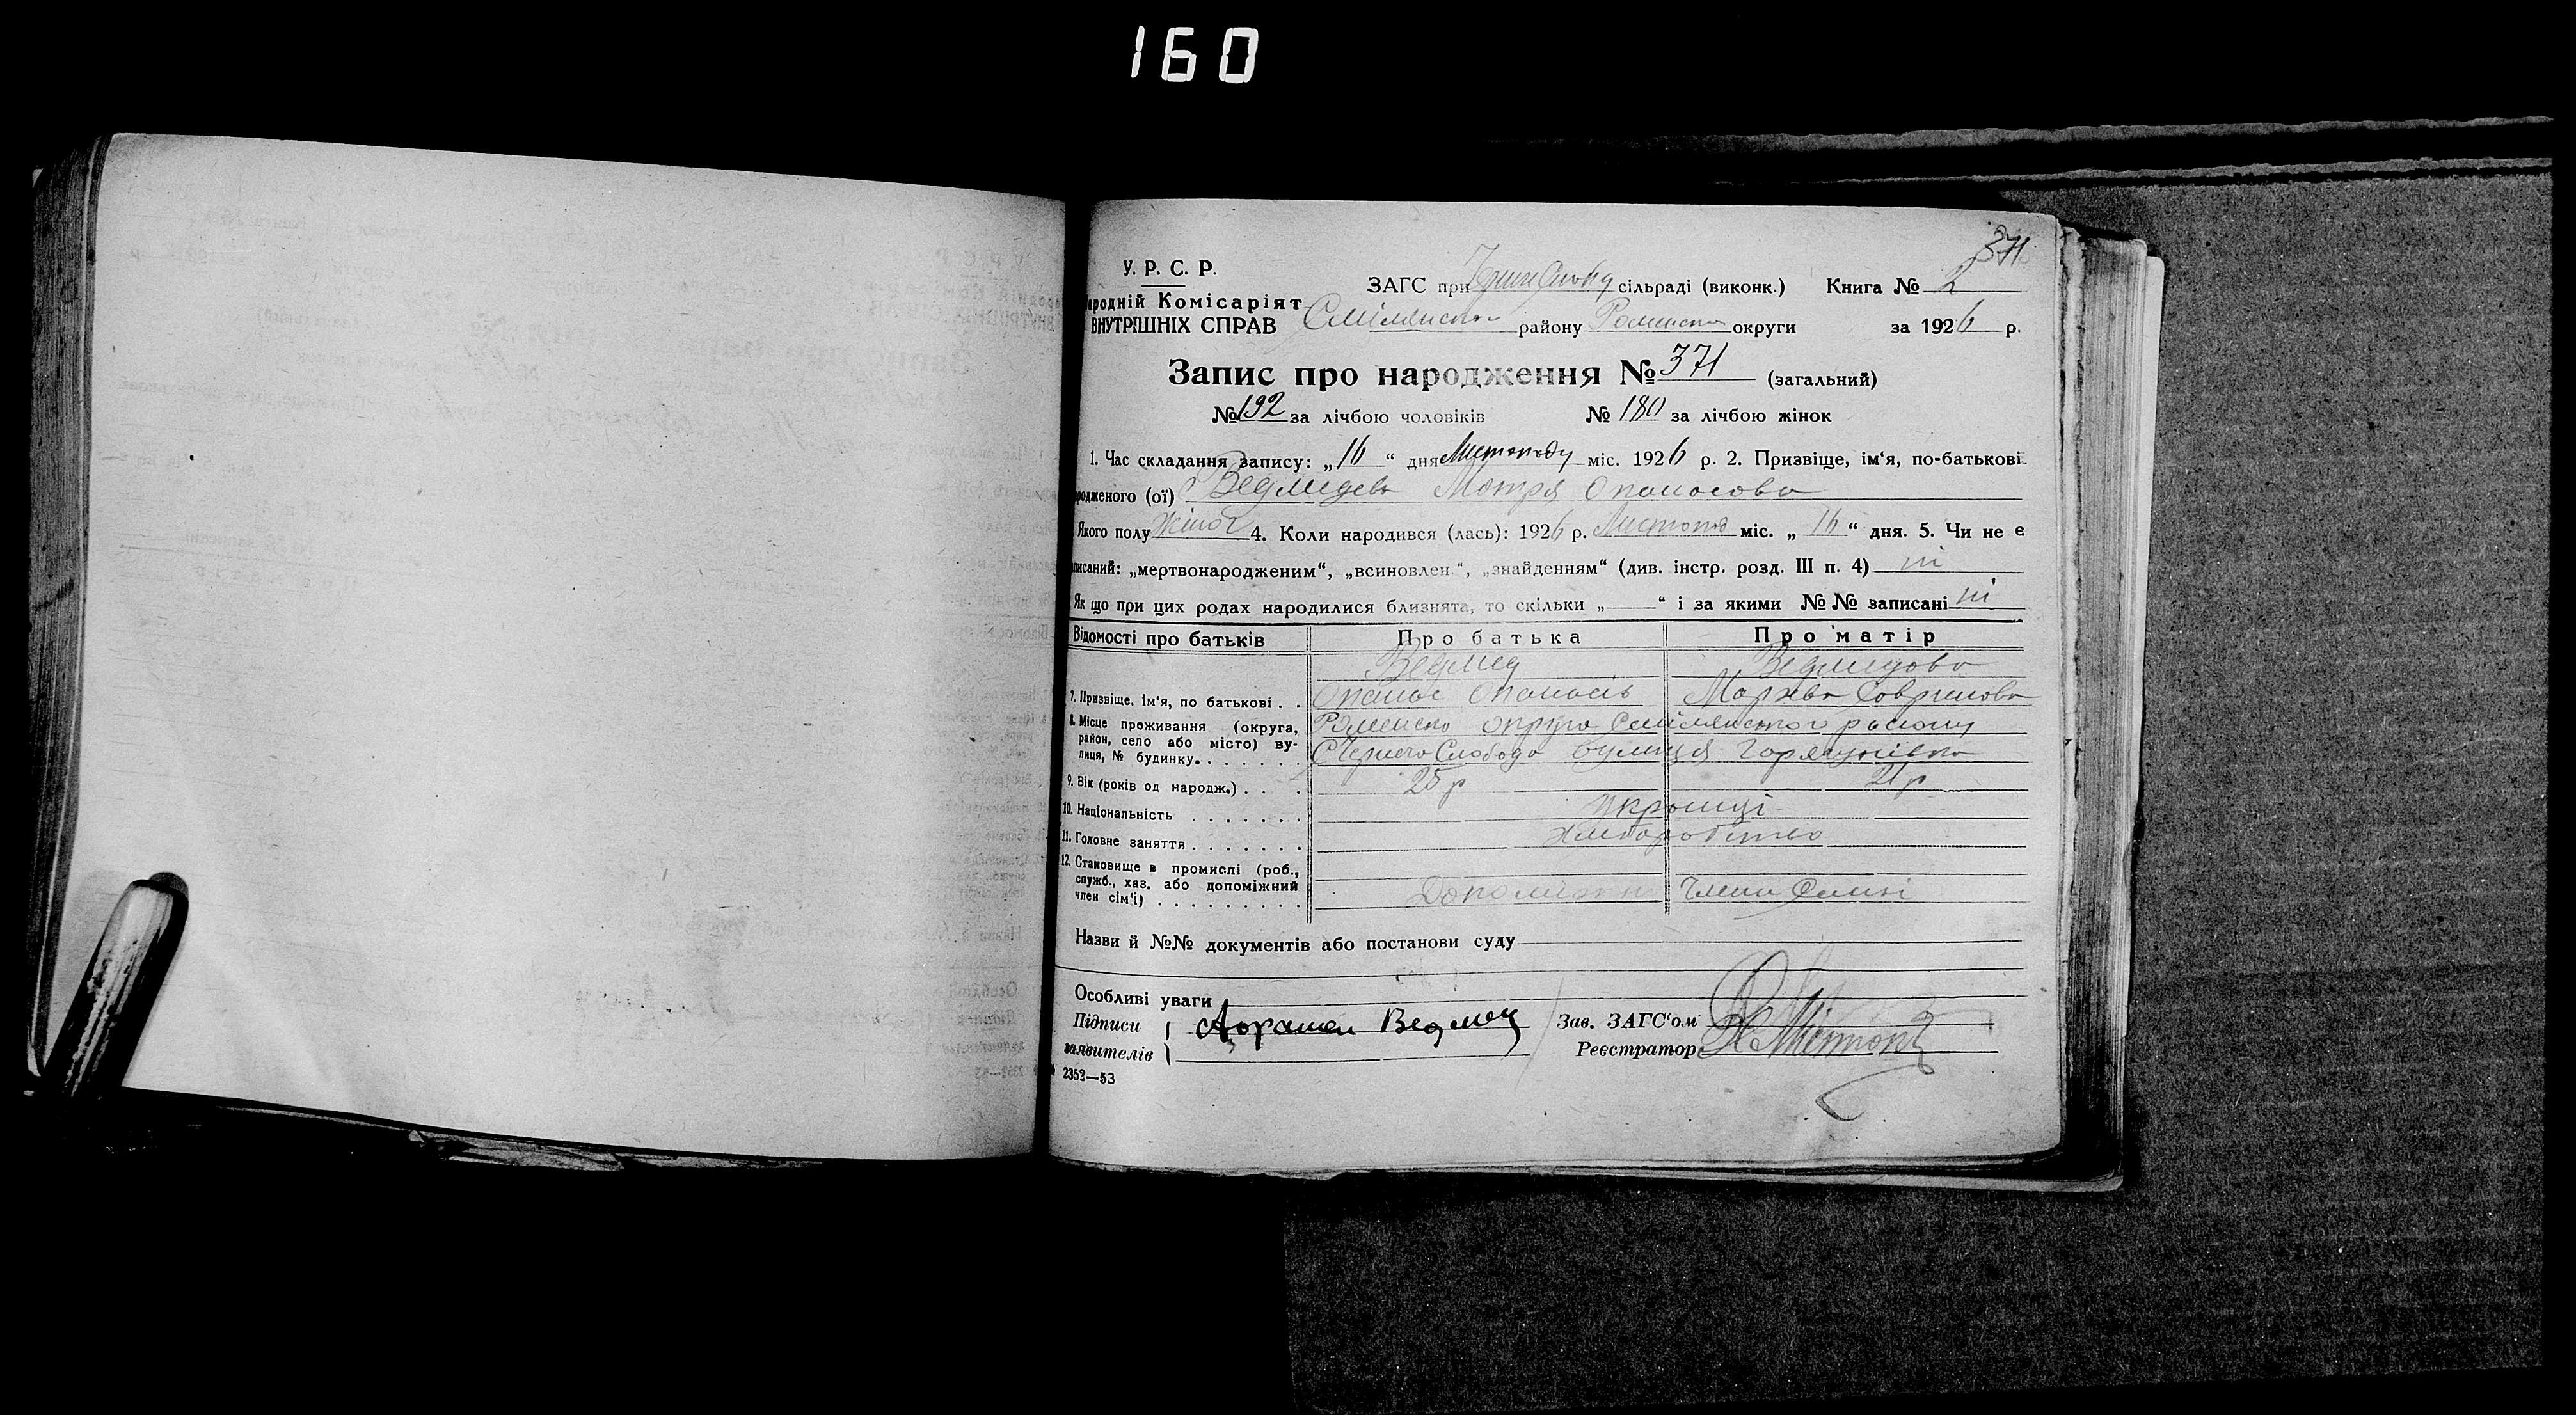 160
371
У. Р. С. Р.
ЗАГС при сільраді (виконк.) Книга № 2
ародній Комісаріят
ВНУТРІШНІХ СПРАВ Смілянсько району Роменсько округи за 1926 р.
Запис про народження № 371 (загальний)
№ 192 за лічбою чоловіків № 180 за лічбою жінок
1. Час складання запису: „16“ дня Листопаду міс. 1926 р. 2. Призвіще, ім‘я, по-батькові
родженого (ої) Ведмидева Мотря Опанасова
Якого полу жіноч 4. Коли народився (лась): 1926 р. Листопад міс. „16“ дня. 5. Чи не є
писаний: „мертвонародженим“, „всиновлен.“, „знайденням“ (див. інстр. розд. III п. 4) ні
Як що при цих родах народилися близнята, то скільки „—“ і за якими №№ записані ні
Відомості про батьків Про батька Про матір
Ведмед Ведмидова
7. Призвіще, ім‘я, по батькові . . Опанас Опанасів Мархва
8. Місце проживання (округа, Роменська округа Смілянського району
район, село або місто) ву-
лиця, № будинку. С Чернеча Слобода вулиця
9. Вік (років од народж.) . . . 25 р 21 р
10. Національність . . . . . . . Українці
11. Головне заняття . . . . . . . Хліборобство
12. Становище в промислі (роб.,
служб., хаз. або допоміжний Допоміжни члени семні
член сім‘ї) . . . . . . . . .
Назви й №№ документів або постанови суду
Особливі уваги
Підписи Ведмед Зав. ЗАГС‘ом
заявителів Реєстратор
2352—53